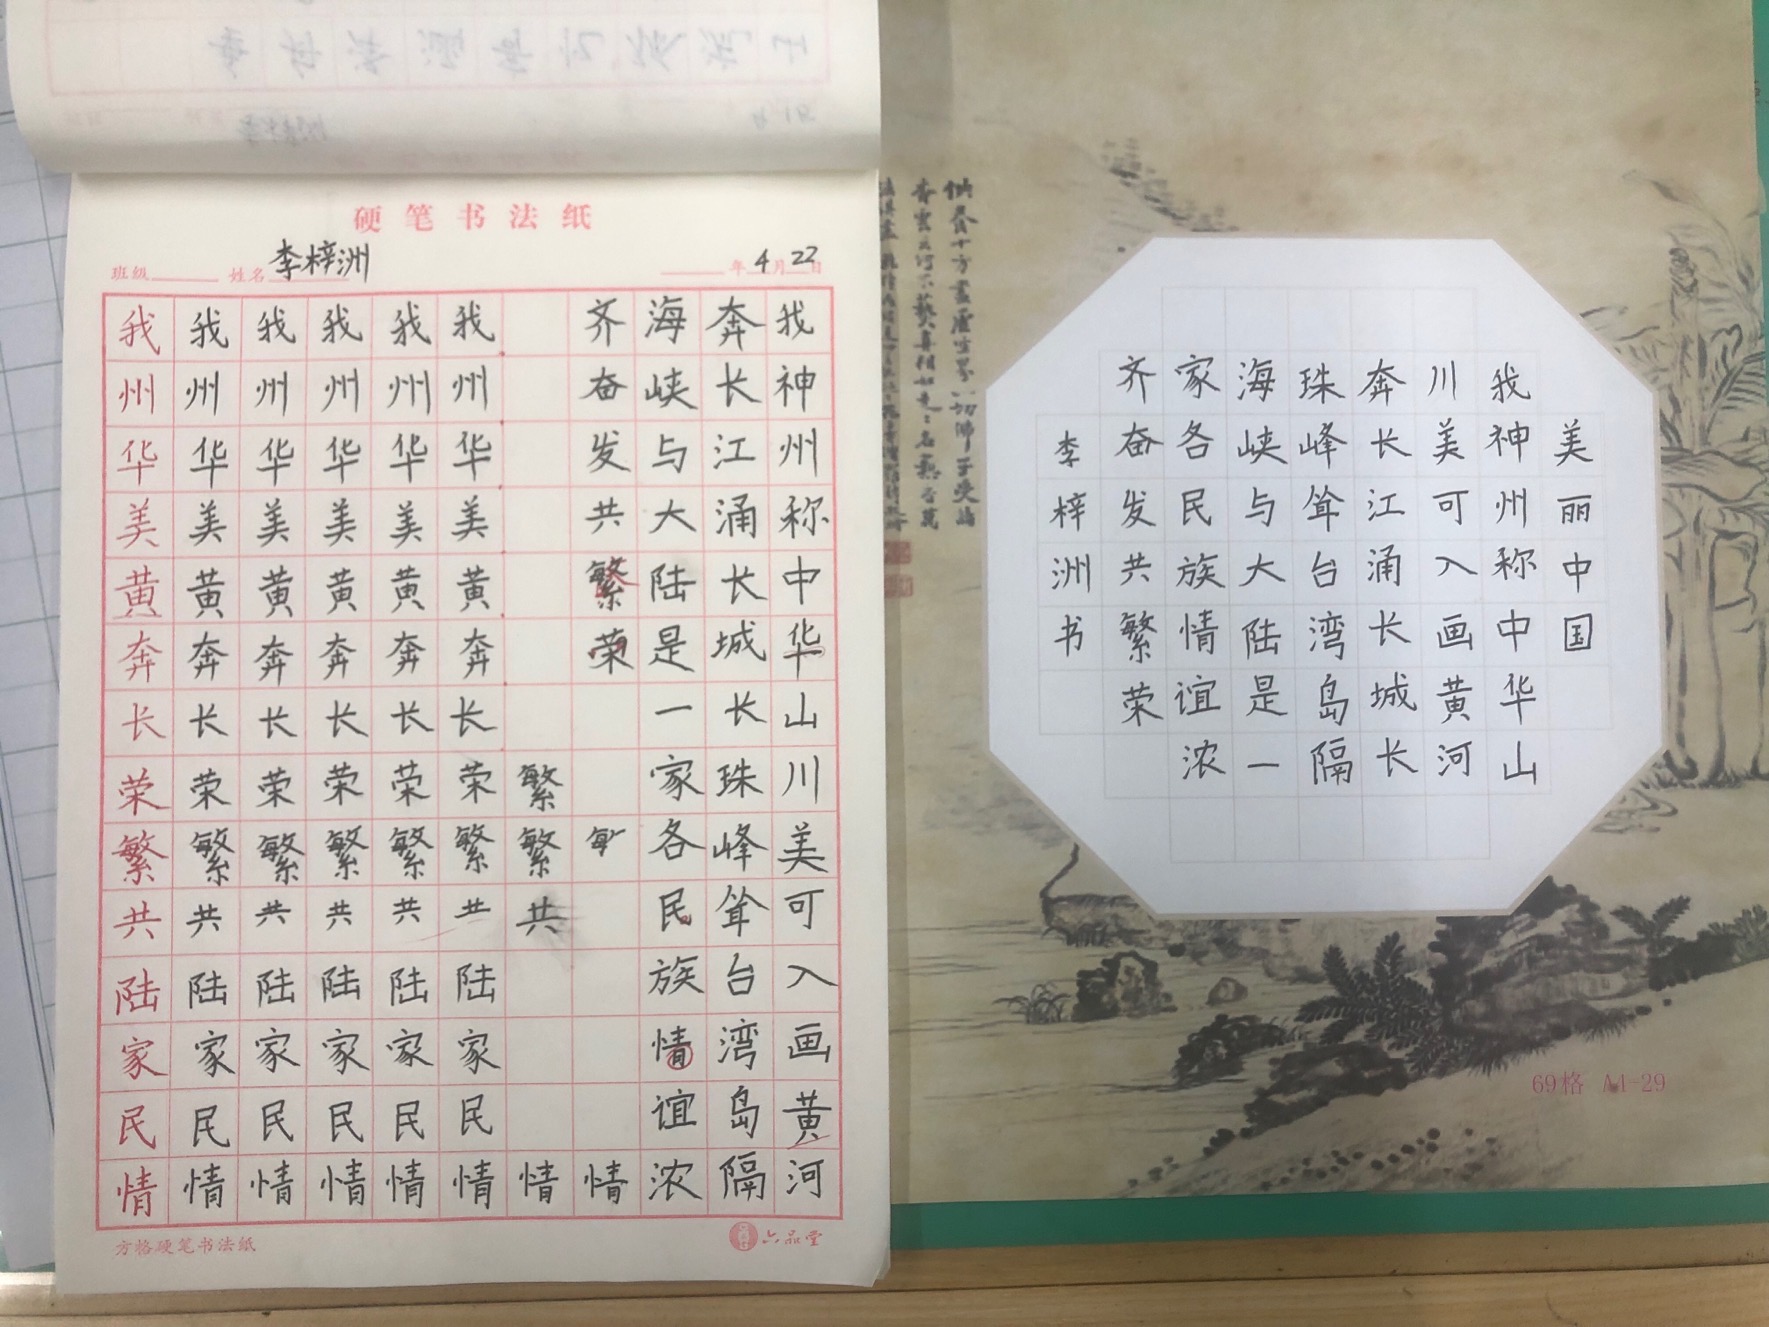 硬笔书法纸
班级 姓名 李梓洲 年 4 月 22 日
我神州称中华山川美可入画黄河
奔长江涌长城长珠峰耸台湾岛隔
海峡与大陆是一家各民族情谊浓
齐奋发共繁荣
繁
情
繁繁共情
我州华美黄奔长荣繁共陆家民情
我州华美黄奔长荣繁共陆家民情
我州华美黄奔长荣繁共陆家民情
我州华美黄奔长荣繁共陆家民情
我州华美黄奔长荣繁共陆家民情
我州华美黄奔长荣繁共陆家民情
方格硬笔书法纸
六品堂
美丽中国
我神州称中华山
川美可入画黄河
奔长江涌长城长
珠峰耸台湾岛隔
海峡与大陆是一
家各民族情谊浓
齐奋发共繁荣
李梓洲书
69格 A4-29